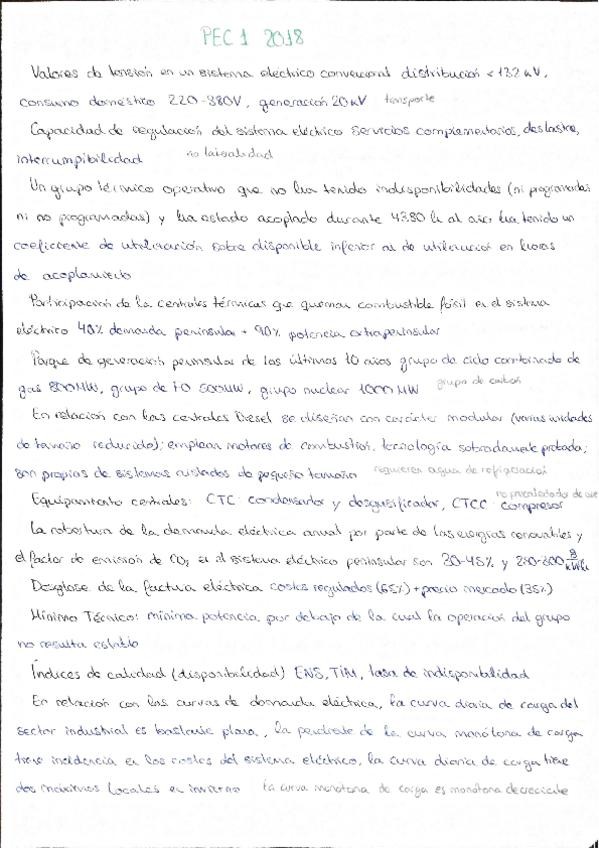 PEC 1 2018
Valores de tensión en un sistema eléctrico convencional distribución < 132 kV,
consumo doméstico 220-380V, generación 20 kV transporte
Capacidad de regulación del sistema eléctrico servicios complementarios, deslastre,
interrumpibilidad no laboralidad
Un grupo térmico operativo que no ha tenido indisponibilidades (ni programadas
ni no programadas) y ha estado acoplado durante 4380 h al año, ha tenido un
coeficiente de utilización sobre disponible inferior al de utilización en horas
de acoplamiento
Participación de la centrales térmicas que queman combustible fósil en el sistema
eléctrico 40% demanda peninsular + 90% potencia extrapeninsular
Parque de generación peninsular de los últimos 10 años grupo de ciclo combinado de
gas 800MW, grupo de FO 500MW, grupo nuclear 1000 MW grupo de carbón
En relación con las centrales Diesel se diseñan con carácter modular (varias unidades
de tamaño reducido); emplean motores de combustión, tecnología sobradamente probada;
son propias de sistemas aislados de pequeño tamaño requieren agua de refrigeración
Equipamiento centrales: CTC: condensador y desgasificador, CTCC compresor no precalentador de aire
La cobertura de la demanda eléctrica anual por parte de las energías renovables y
el factor de emisión de CO₂ en el sistema eléctrico peninsular son 30-45% y g/kWh
Desglose de la factura eléctrica costes regulados (65%) + precio mercado (35%)
Mínimo Técnico: mínima potencia por debajo de la cual la operación del grupo
no resulta estable
Índices de calidad (disponibilidad) ENS, TIM, tasa de indisponibilidad
En relación con las curvas de demanda eléctrica, la curva diaria de carga del
sector industrial es bastante plana, la pendiente de la curva monótona de carga
tiene incidencia en los costes del sistema eléctrico, la curva diaria de carga tiene
dos máximos locales en invierno la curva monótona de carga es monótona decreciente